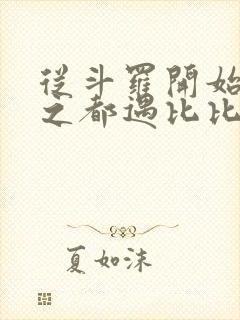 從斗羅開始
之都遇比比
夏如沫